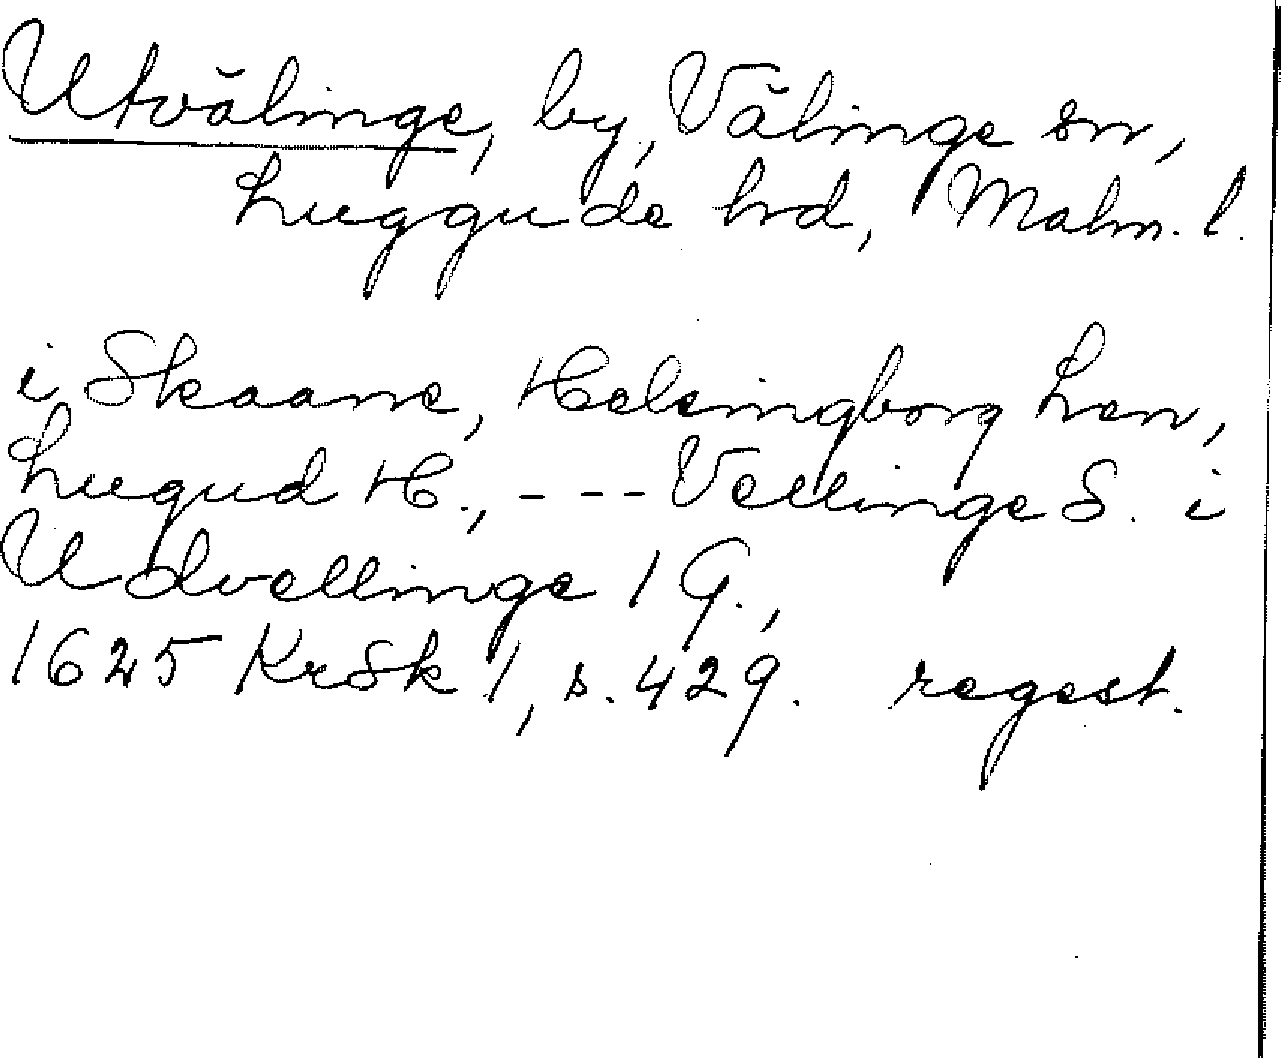 Utvälinge, by, Välinge sn,
Luggude hrd, Malm. l.
i Skaane, Helsingborg Len,
Lugud H., --- Vellinge S. i
Udvellinge 1 G.,
1625 KrSk 1, s. 429. regest.